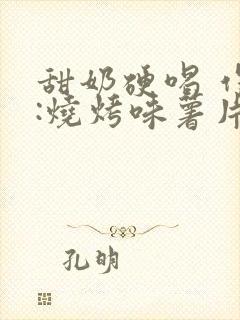 甜奶硬唱 作
:燒烤味薯片
孔明